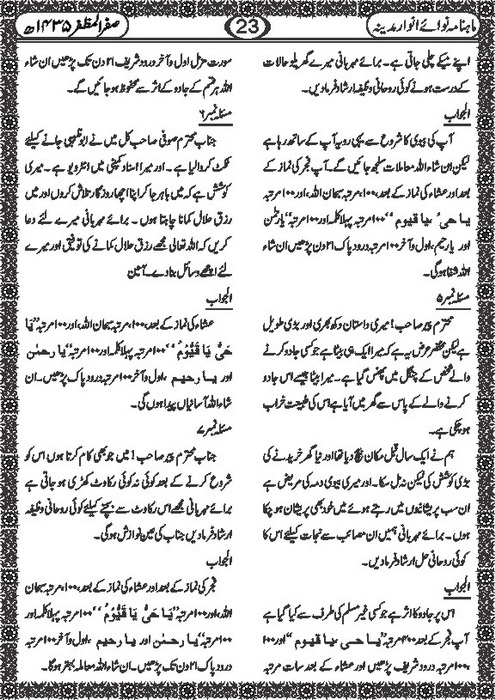 ماہنامہ نوائے انوار مدینہ
23
صفر المظفر ۱۴۳۵ھ
اپنے میکے چلی جاتی ہے۔ برائے مہربانی میرے گھریلو حالات
کے درست ہونے کوئی روحانی وظیفہ ارشاد فرما دیں۔
الجواب
آپ کی بیوی کا شروع سے یہی رویہ آپ کے ساتھ رہا ہے
لیکن ان شاء اللہ معاملات سلجھ جائیں گے۔ آپ فجر کی نماز کے
بعد اور عشاء کی نماز کے بعد، ۱۰۰ مرتبہ سبحان اللہ، اور ۱۰۰ مرتبہ
یا حی یا قیوم“ ۱۰۰ مرتبہ پہلا کلمہ اور ۱۰۰ مرتبہ ”یا رحمٰن
اور یا رحیم، اول و آخر ۱۰۰ مرتبہ درود پاک ۲۱ دن پڑھیں ان شاء
اللہ شفا ہوگی۔
مسئلہ نمبر ۵
محترم پیر صاحب! میری داستان دکھ بھری اور بڑی طویل
ہے لیکن مختصر عرض یہ ہے کہ میرا ایک ہی بیٹا ہے جو کسی جادو کرنے
والے شخص کے چنگل میں پھنس گیا ہے۔ میرا بیٹا جیسے اس جادو
کرنے والے کے پاس سے گھر میں آیا ہے اس کی طبیعت خراب
ہو چکی ہے۔
ہم نے ایک سال قبل مکان بیچ دیا تھا اور نیا گھر خریدنے کی
بڑی کوشش کی لیکن نہ مل سکا۔ اور میری بیوی دمہ کی مریض ہے
ان سب پریشانیوں میں رہتے ہوئے میں خود بھی پریشان ہو چکا
ہوں۔ برائے مہربانی ہمیں ان مصائب سے نجات کیلئے اس کا
کوئی روحانی حل ارشاد فرما دیں۔
الجواب
اس پر جادو کا اثر ہے جو کسی غیر مسلم کی طرف سے کیا گیا ہے
آپ فجر کے بعد ۴۰۰ مرتبہ ”یا حی یا قیوم“ اور ۱۰۰
مرتبہ درود شریف پڑھیں اور عشاء کے بعد سات مرتبہ
سورت مزمل اول و آخر درود شریف ۲۱ دن تک پڑھیں ان شاء
اللہ ہر قسم کے جادو کے اثر سے محفوظ ہو جائیں گے۔
مسئلہ نمبر ۶
جناب محترم صوفی صاحب کل میں نے ابوظہبی جانے کیلئے
ٹکٹ کروا لیا ہے۔ اور میرا اسناد کمپنی میں انٹرویو ہے۔ میری
کوشش ہے کہ میں باہر جا کر اپنا اچھا روزگار تلاش کروں اور میں
رزق حلال کمانا چاہتا ہوں۔ برائے مہربانی میرے لئے دعا
کریں کہ اللہ تعالیٰ مجھے رزق حلال کمانے کی توفیق اور میرے
لئے اچھے وسائل بنا دے۔ آمین
الجواب
عشاء کی نماز کے بعد، ۱۰۰ مرتبہ سبحان اللہ، اور ۱۰۰ مرتبہ ”یَا
حَیُّ یَا قَیُّوْمُ“ ۱۰۰ مرتبہ پہلا کلمہ اور ۱۰۰ مرتبہ ”یا رحمٰن
اور یا رحیم، اول و آخر ۱۰۰ مرتبہ درود پاک پڑھیں۔ ان
شاء اللہ آسانیاں پیدا ہوں گی۔
مسئلہ نمبر ۷
جناب محترم پیر صاحب! میں جو بھی کام کرتا ہوں اس کو
شروع کرنے کے بعد کوئی نہ کوئی رکاوٹ کھڑی ہو جاتی ہے
برائے مہربانی مجھے اس رکاوٹ سے بچنے کیلئے کوئی روحانی وظیفہ
ارشاد فرما دیں جناب کی عین نوازش ہوگی۔
الجواب
فجر کی نماز کے بعد اور عشاء کی نماز کے بعد، ۱۰۰ مرتبہ سبحان
اللہ، اور ۱۰۰ مرتبہ ”یَا حَیُّ یَا قَیُّوْمُ“ ۱۰۰ مرتبہ پہلا کلمہ اور
۱۰۰ مرتبہ ”یا رحمٰن اور یا رحیم، اول و آخر ۱۰۰ مرتبہ
درود پاک ۲۱ دن تک پڑھیں۔ ان شاء اللہ معاملہ بہتر ہوگا۔